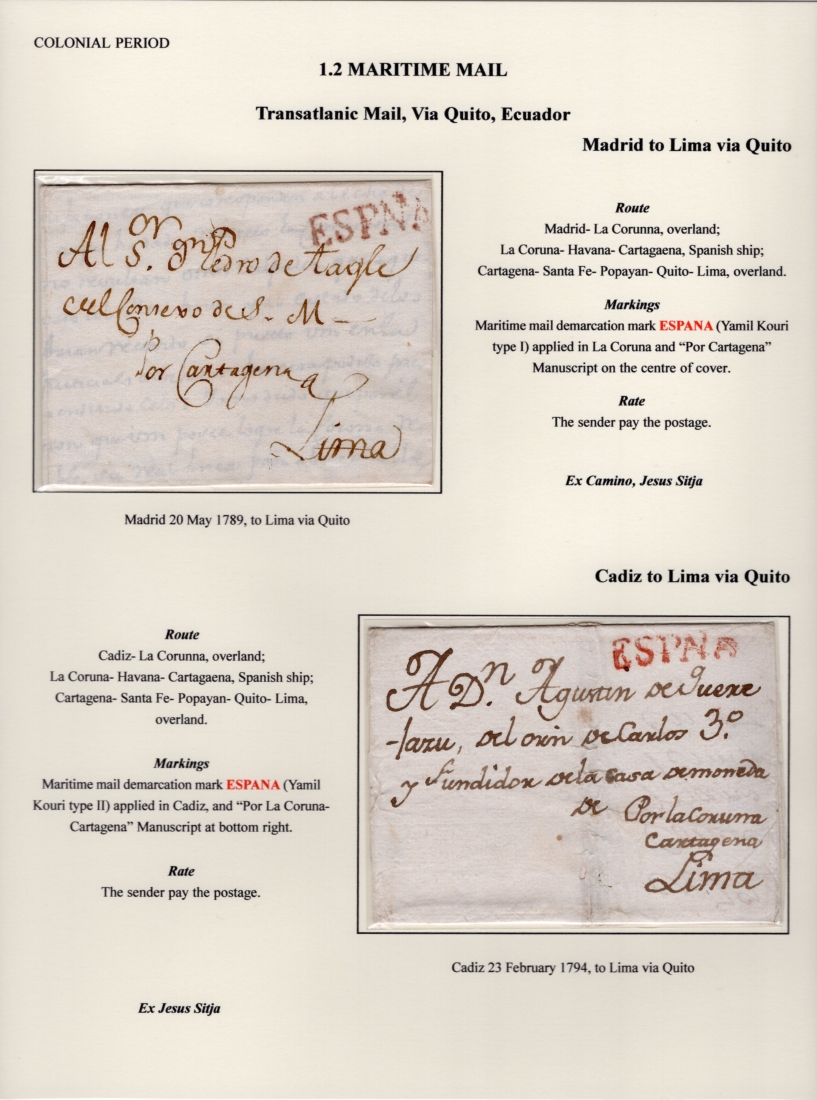 COLONIAL PERIOD
1.2 MARITIME MAIL
Transatlanic Mail, Via Quito, Ecuador
Madrid to Lima via Quito
ESPNA
Al S.or Dn Pedro de Tagle
del Consexo de S. M
por Cartagena a
Lima
Route
Madrid- La Corunna, overland;
La Coruna- Havana- Cartagaena, Spanish ship;
Cartagena- Santa Fe- Popayan- Quito- Lima, overland.
Markings
Maritime mail demarcation mark ESPANA (Yamil Kouri
type I) applied in La Coruna and “Por Cartagena”
Manuscript on the centre of cover.
Rate
The sender pay the postage.
Ex Camino, Jesus Sitja
Madrid 20 May 1789, to Lima via Quito
Cadiz to Lima via Quito
Route
Cadiz- La Corunna, overland;
La Coruna- Havana- Cartagaena, Spanish ship;
Cartagena- Santa Fe- Popayan- Quito- Lima,
overland.
Markings
Maritime mail demarcation mark ESPANA (Yamil
Kouri type II) applied in Cadiz, and “Por La Coruna-
Cartagena” Manuscript at bottom right.
Rate
The sender pay the postage.
Ex Jesus Sitja
ESPNA
A Dn. Agustin de Quexe
-jazu, del orn de Carlos 3.º
y fundidor de la casa de moneda
de Por la Coruña
Cartagena
Lima
Cadiz 23 February 1794, to Lima via Quito